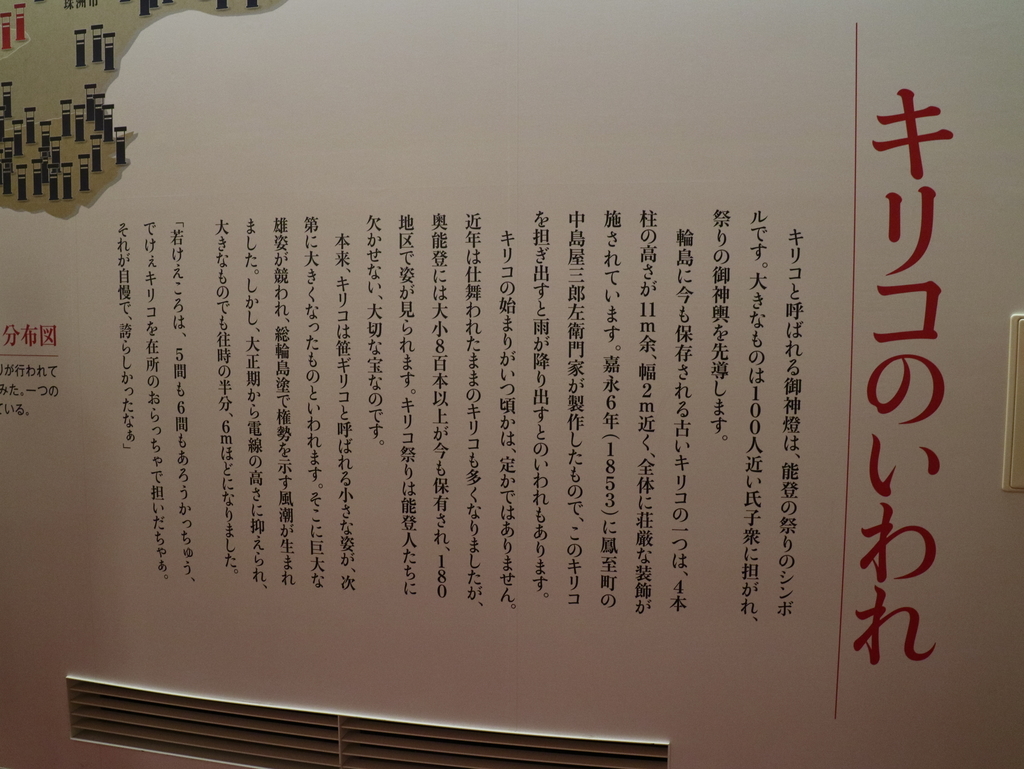 キリコのいわれ
キリコと呼ばれる御神燈は、能登の祭りのシンボ
ルです。大きなものは100人近い氏子衆に担がれ、
祭りの御神輿を先導します。
輪島に今も保存される古いキリコの一つは、4本
柱の高さが11m余、幅2m近く、全体に荘厳な装飾が
施されています。嘉永6年(1853)に鳳至町の
中島屋三郎左衛門家が製作したもので、このキリコ
を担ぎ出すと雨が降り出すとのいわれもあります。
キリコの始まりがいつ頃かは、定かではありません。
近年は仕舞われたままのキリコも多くなりましたが、
奥能登には大小8百本以上が今も保有され、180
地区で姿が見られます。キリコ祭りは能登人たちに
欠かせない、大切な宝なのです。
本来、キリコは笹ギリコと呼ばれる小さな姿が、次
第に大きくなったものといわれます。そこに巨大な
雄姿が競われ、総輪島塗で権勢を示す風潮が生まれ
ました。しかし、大正期から電線の高さに抑えられ、
大きなものでも往時の半分、6mほどになりました。
「若けえころは、5間も6間もあろうかっちゅう、
でけぇキリコを在所のおらっちゃで担いだちゃぁ。
それが自慢で、誇らしかったなぁ」
珠洲市
分布図
りが行われて
みた。一つの
ている。